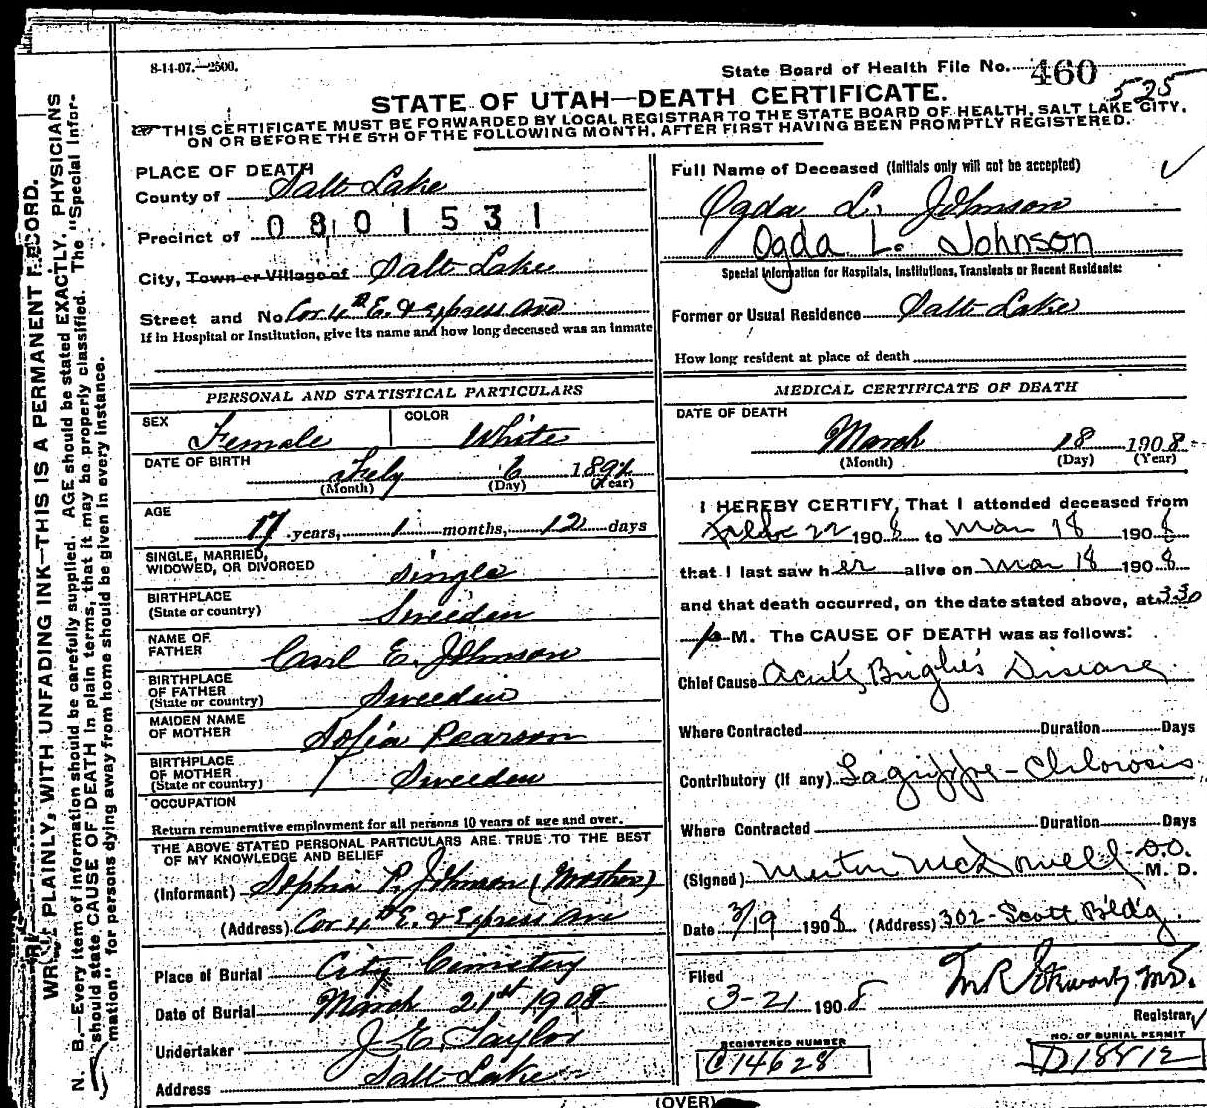 8-14-07.—2500.
State Board of Health File No. 460
525
STATE OF UTAH—DEATH CERTIFICATE.
THIS CERTIFICATE MUST BE FORWARDED BY LOCAL REGISTRAR TO THE STATE BOARD OF HEALTH, SALT LAKE CITY,
ON OR BEFORE THE 5TH OF THE FOLLOWING MONTH, AFTER FIRST HAVING BEEN PROMPTLY REGISTERED.
PLACE OF DEATH
County of Salt Lake
Precinct of 0801531
City, Town or Village of Salt Lake
Street and No Cor 4th E. & Express Ave
If in Hospital or Institution, give its name and how long deceased was an inmate
Full Name of Deceased (Initials only will not be accepted)
Ogda L. Johnson
Ogda L. Johnson
Special Information for Hospitals, Institutions, Transients or Recent Residents:
Former or Usual Residence Salt Lake
How long resident at place of death
PERSONAL AND STATISTICAL PARTICULARS
SEX Female
COLOR White
DATE OF BIRTH Feby 6 1891
(Month) (Day) (Year)
AGE 17 years, 1 months, 12 days
SINGLE, MARRIED,
WIDOWED, OR DIVORCED Single
BIRTHPLACE
(State or country) Sweeden
NAME OF
FATHER Carl E. Johnson
BIRTHPLACE
OF FATHER
(State or country) Sweeden
MAIDEN NAME
OF MOTHER Sofia Pearson
BIRTHPLACE
OF MOTHER
(State or country) Sweeden
OCCUPATION
Return remunerative employment for all persons 10 years of age and over.
THE ABOVE STATED PERSONAL PARTICULARS ARE TRUE TO THE BEST
OF MY KNOWLEDGE AND BELIEF
(Informant) Sophia P. Johnson (Mother)
(Address) Cor 4th E. & Express Ave
Place of Burial City Cemetery
Date of Burial March 21st 1908
Undertaker J. E. Taylor
Address Salt Lake
MEDICAL CERTIFICATE OF DEATH
DATE OF DEATH
March 18 1908
(Month) (Day) (Year)
I HEREBY CERTIFY, That I attended deceased from
Feb 22 1908 to Mar 18 1908
that I last saw her alive on Mar 18 1908
and that death occurred, on the date stated above, at 330
p M. The CAUSE OF DEATH was as follows:
Chief Cause Acute Bright's Disease
Where Contracted Duration Days
Contributory (if any) Lagrippe - Chlorosis
Where Contracted Duration Days
(Signed) McDowell D.O.
M. D.
Date 3/19 1908 (Address) 302-Scott Bldg.
Filed
3-21 1908
M.D.
Registrar
REGISTERED NUMBER
C14628
NO. OF BURIAL PERMIT
D18812
(OVER)
WRITE PLAINLY, WITH UNFADING INK—THIS IS A PERMANENT RECORD.
N. B.—Every item of information should be carefully supplied. AGE should be stated EXACTLY. PHYSICIANS
should state CAUSE OF DEATH in plain terms, that it may be properly classified. The "Special Infor-
mation" for persons dying away from home should be given in every instance.